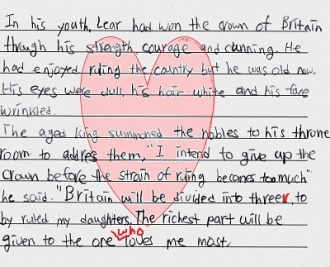 In his youth, Lear had won the crown of Britain
though his strength, courage and cunning. He
had enjoyed ruling the country but he was old now.
His eyes were dull, his hair white and his face
wrinkled.
The aged king summoned the nobles to his throne
room to addres them, "I intend to give up the
crown before the strain of ruling becomes too much"
he said. "Britain will be divided into three, to
by ruled my daughters. The richest part will be
given to the one who loves me most.